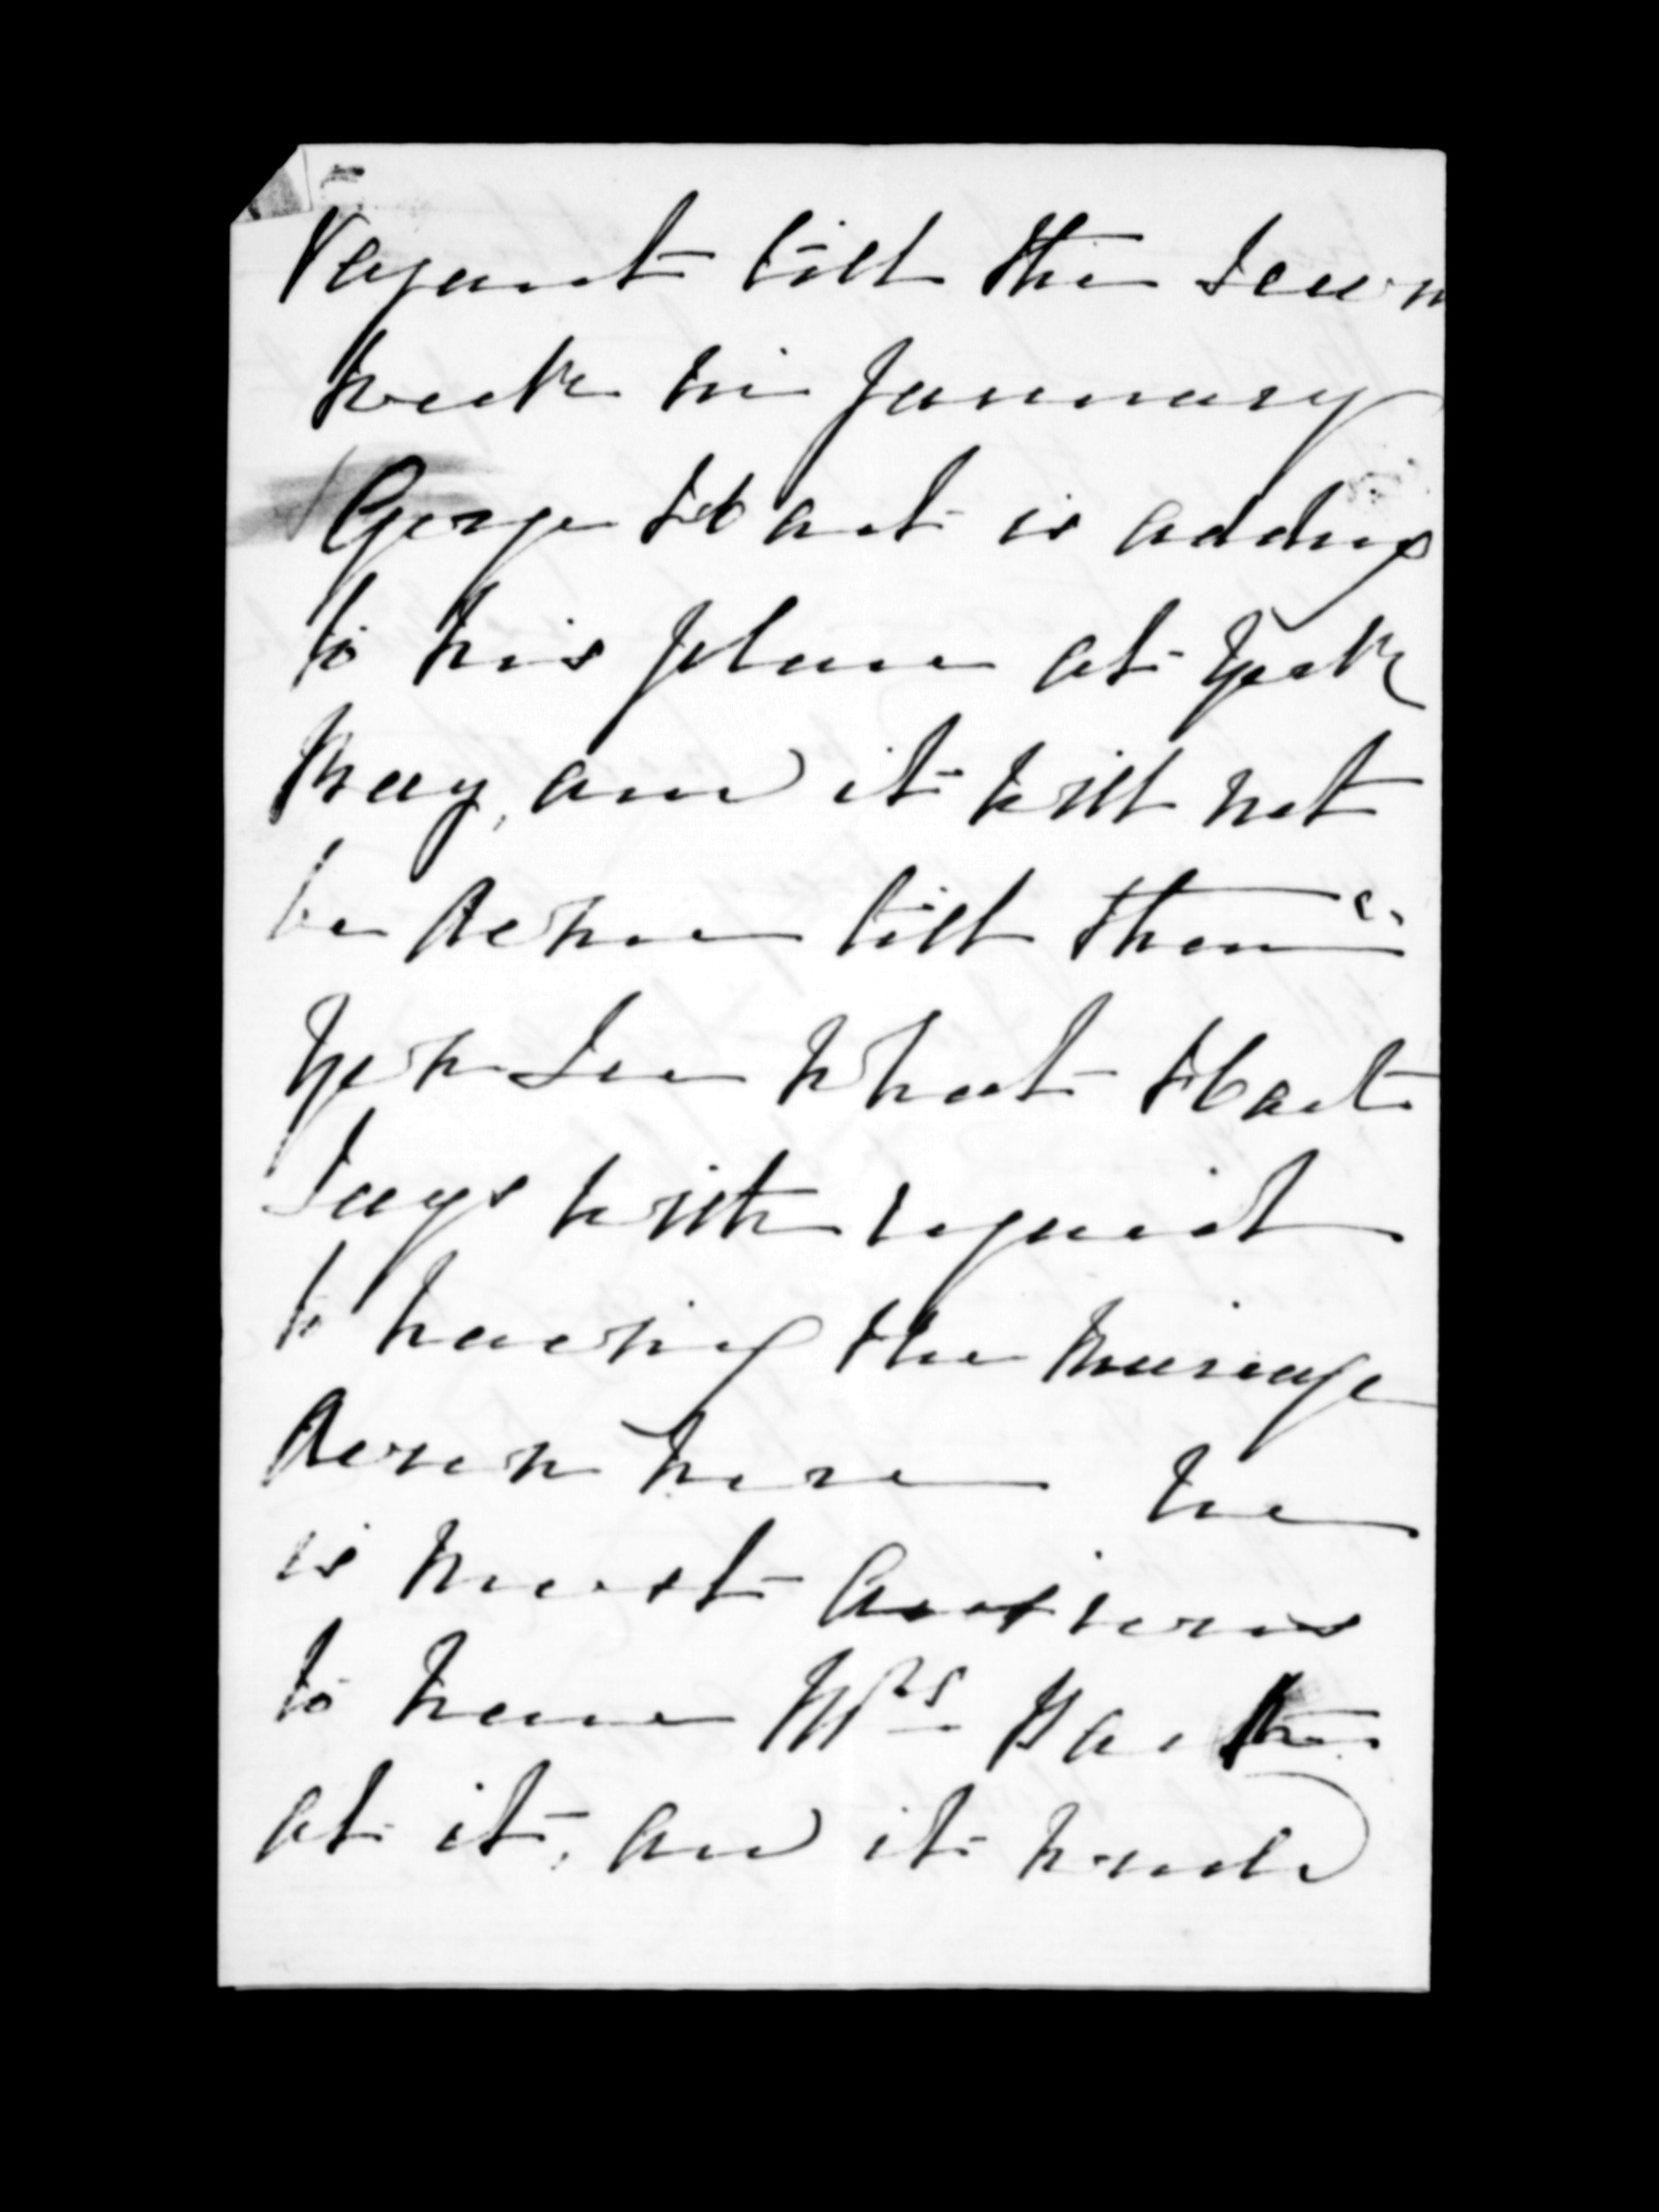 Vagant till the Secon
week in January
George Hart is adding
to his place at York
Bay, and it will not
be done till then
You see what Hart
Says with regard
to having the Mariage
down here he
is most anxious
to have Mrs
at it, and it would